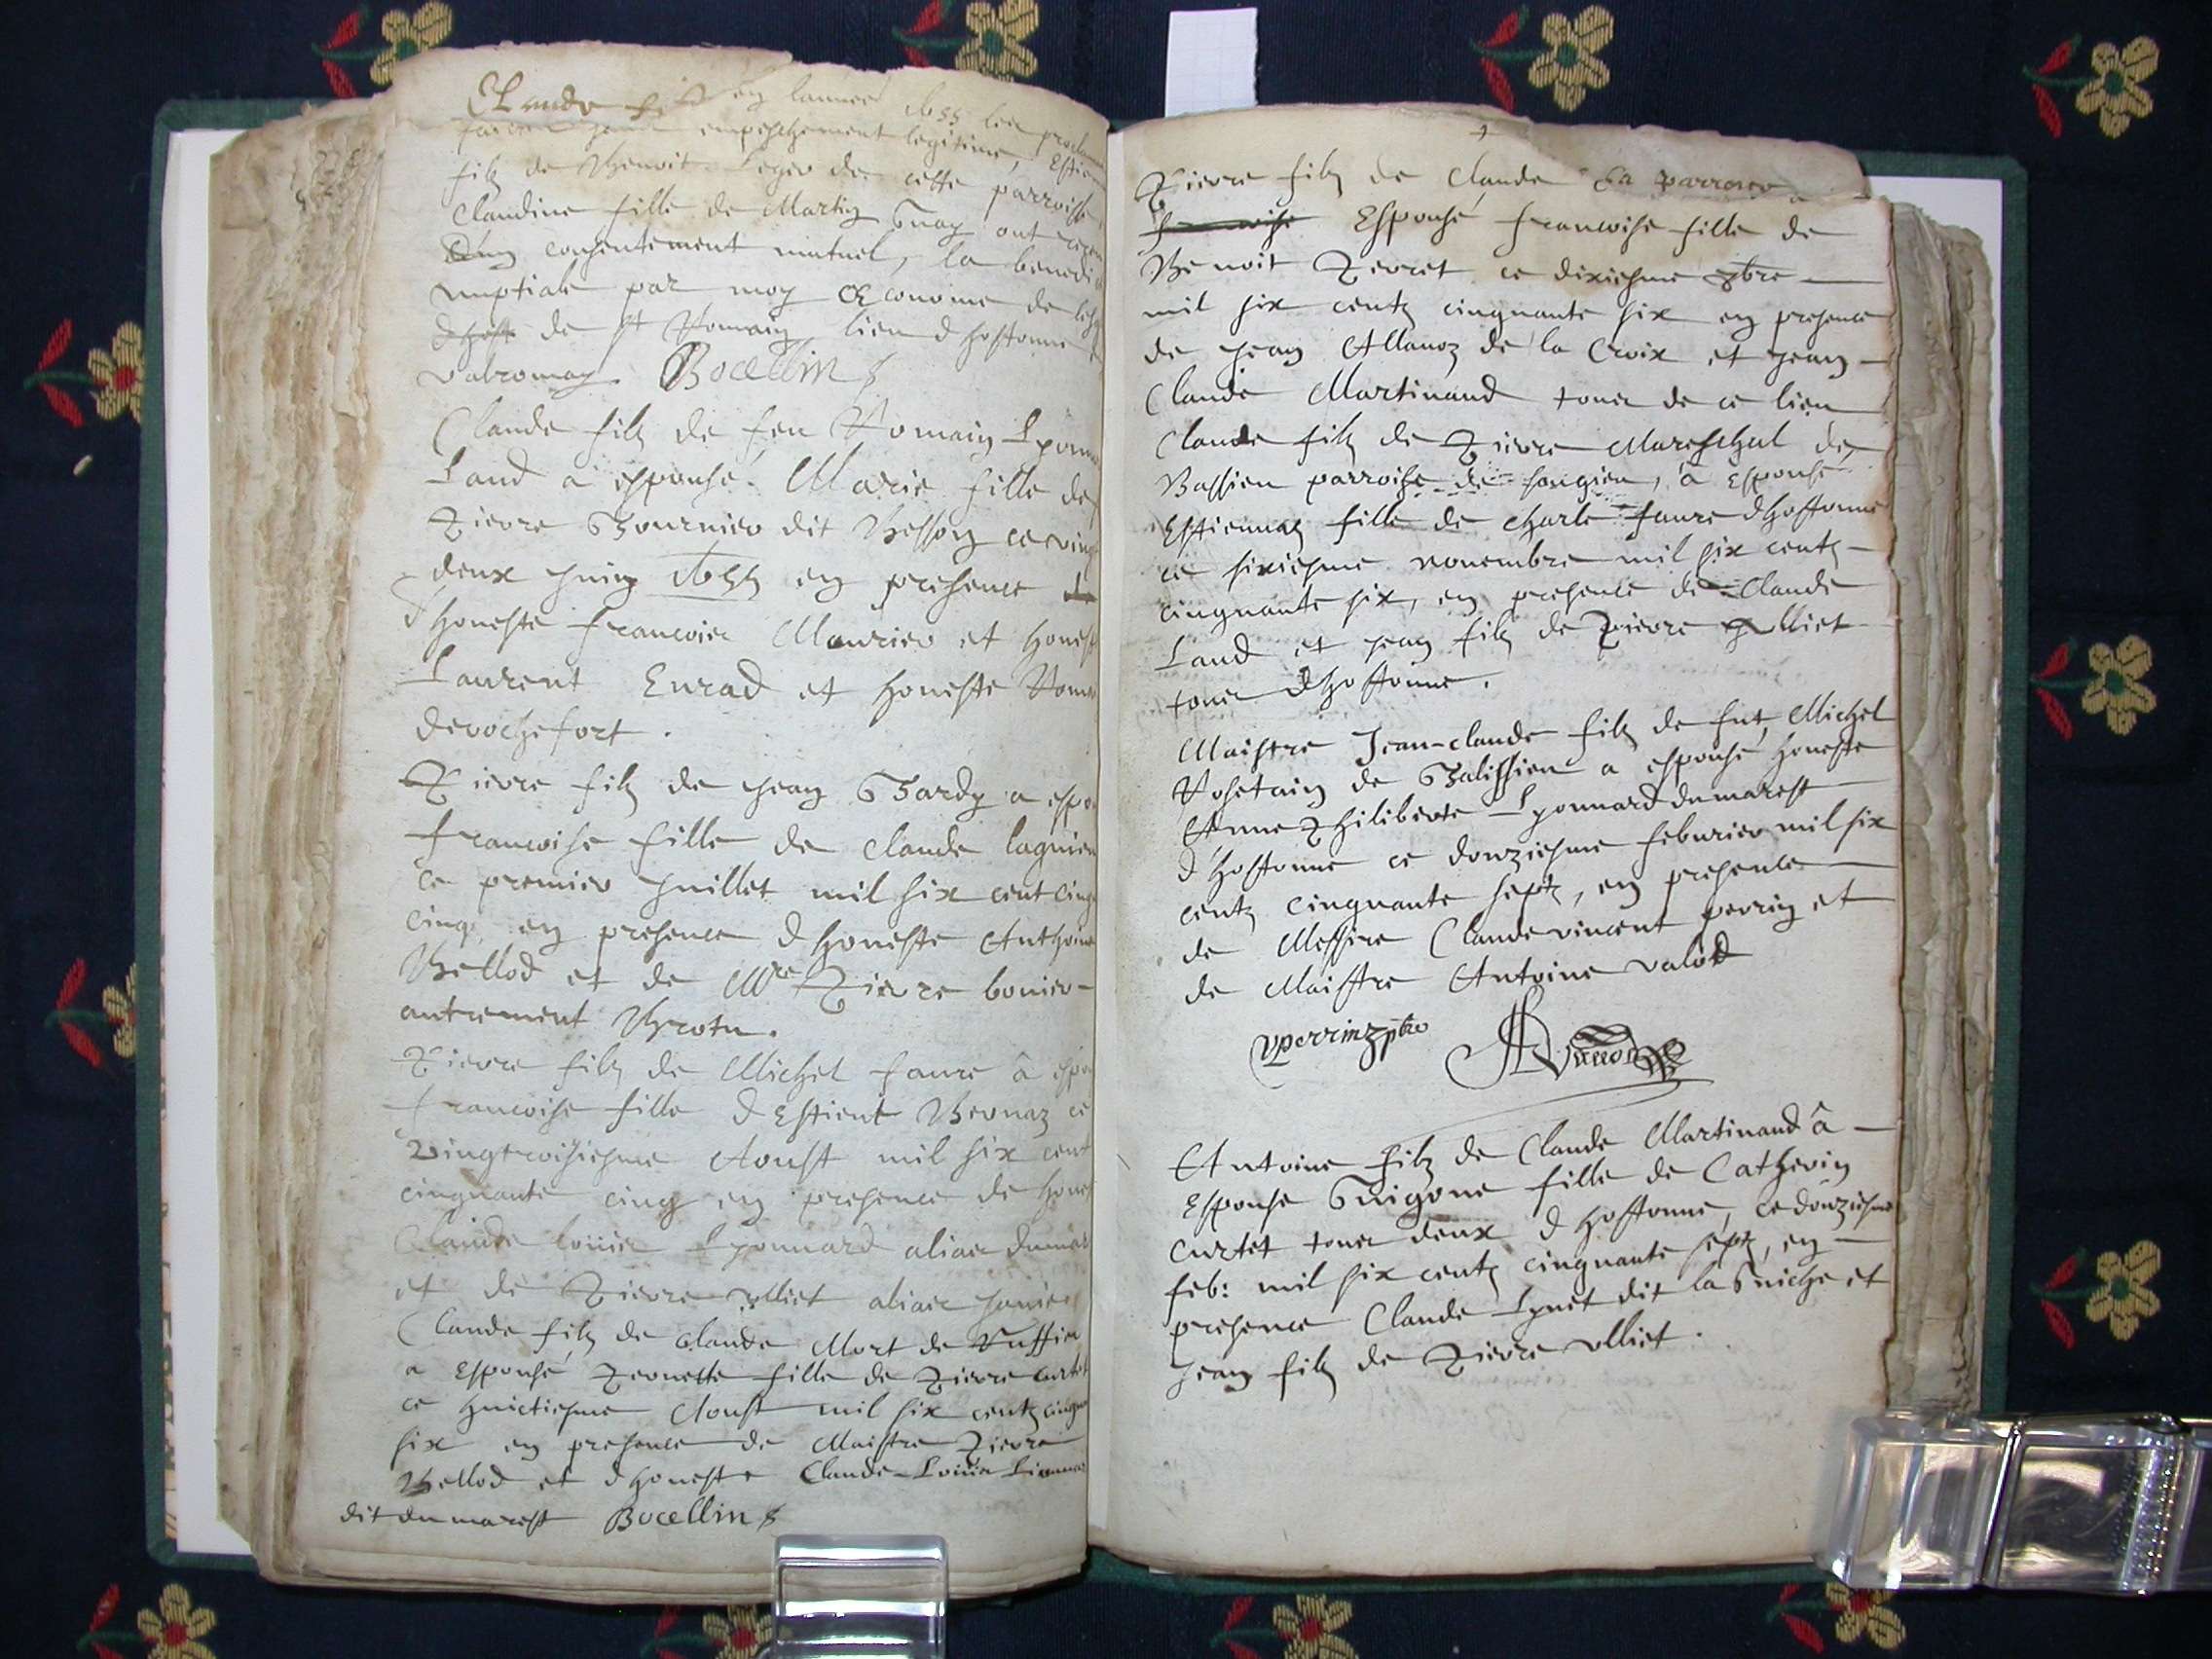 en lannee 1655 les
empeschement legitime, Estien
filz de Benoit Leger de cette parroisse
Claudine fille de Martin Guay ont
d'un consentement mutuel, la benedi
nuptiale par moy Œconome de
de St Romain lieu d'hostonne
valromay. Bocellin
Claude filz de feu Romain Lyonn
Land a espousé Marie fille de
Pierre Gournier dit Besson ce ving
deux juin 1655 en presence
d'honeste francois Mourier et hones
Laurent Enrad et honeste Rom
derochefort.
Pierre filz de jean Gardy a espo
francoise fille de claude lagnieu
ce premier juillet mil six cent cinq
cinq en presence d'honeste Anthoine
Bellod et de Mre Pierre bonier
autrement Brotu.
Pierre filz de Michel faure â espo
francoise fille d'Estient Bernaz ce
vingtroisiesme Aoust mil six cent
cinquante cinq en presence de hones
Claude louis Lyonnard alias dumar
et de Pierre ulliet alias
Claude filz de claude Mort de Ruffieu
a Espousé Pernette fille de Pierre curtet
ce huictiesme Aoust mil six centz cinqu
six en presence de Maistre Pierre
Bellod et d'honeste Claude-Louis Lionna
dit dumarest Bocellin
Pierre filz de Claude La parroise a
Espousé francoise fille de
Benoit Perret ce dixiesme 8bre
mil six centz cinquante six en presence
de jean Allanoz de la Croix et jean
Claude Martinand tous de ce lieu
Claude filz de Pierre Mareschal de
Bassieu parroise de songieu, â Espousé
Estiennaz fille de charle faure d'hostonne
ce sixiesme novembre mil six centz
cinquante six, en presence de Claude
Land et jean filz de Pierre ulliet
tous d'hostonne.
Maistre Jean-claude filz de fut Michel
Rosetain de Galissieu a espousé honeste
Anne Philiberte Lyonnard dumarest
d'hostonne ce douziesme febvrier mil six
centz cinquante sept, en presence
de Messire Claude vincent perrin et
de Maistre Antoine valod
vperrin pbre
Antoine filz de Claude Martinand â
Espouse Guigone fille de Catherin
Curtet tous deux d'hostonne, ce douziesme
feb: mil six centz cinquante sept, en
presence Claude Lynet dit la Guiche et
jean filz de Pierre ulliet.